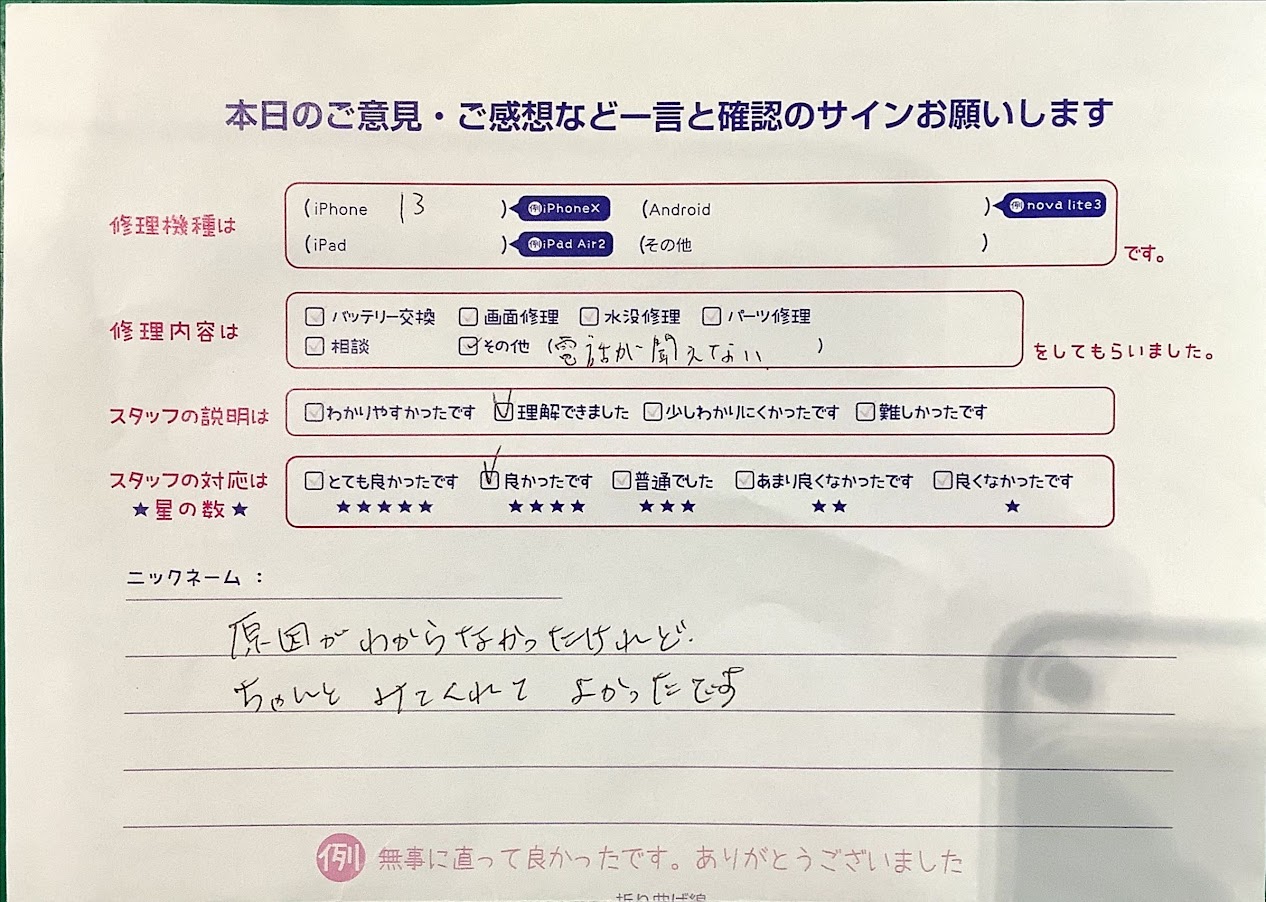 本日のご意見・ご感想など一言と確認のサインお願いします
修理機種は
(iPhone 13 ) 例iPhoneX (Android ) 例nova lite3
(iPad ) 例iPad Air2 (その他 ) です。
修理内容は
バッテリー交換 画面修理 水没修理 パーツ修理
相談 その他 (電話が聞えてない ) をしてもらいました。
スタッフの説明は わかりやすかったです 理解できました 少しわかりにくかったです 難しかったです
スタッフの対応は とても良かったです 良かったです 普通でした あまり良くなかったです 良くなかったです
★星の数★ ★★★★★ ★★★★ ★★★ ★★ ★
ニックネーム：
原因がわからなかったけれど.
ちゃんと みてくれて よかったです
例 無事に直って良かったです。ありがとうございました
折り曲げ線